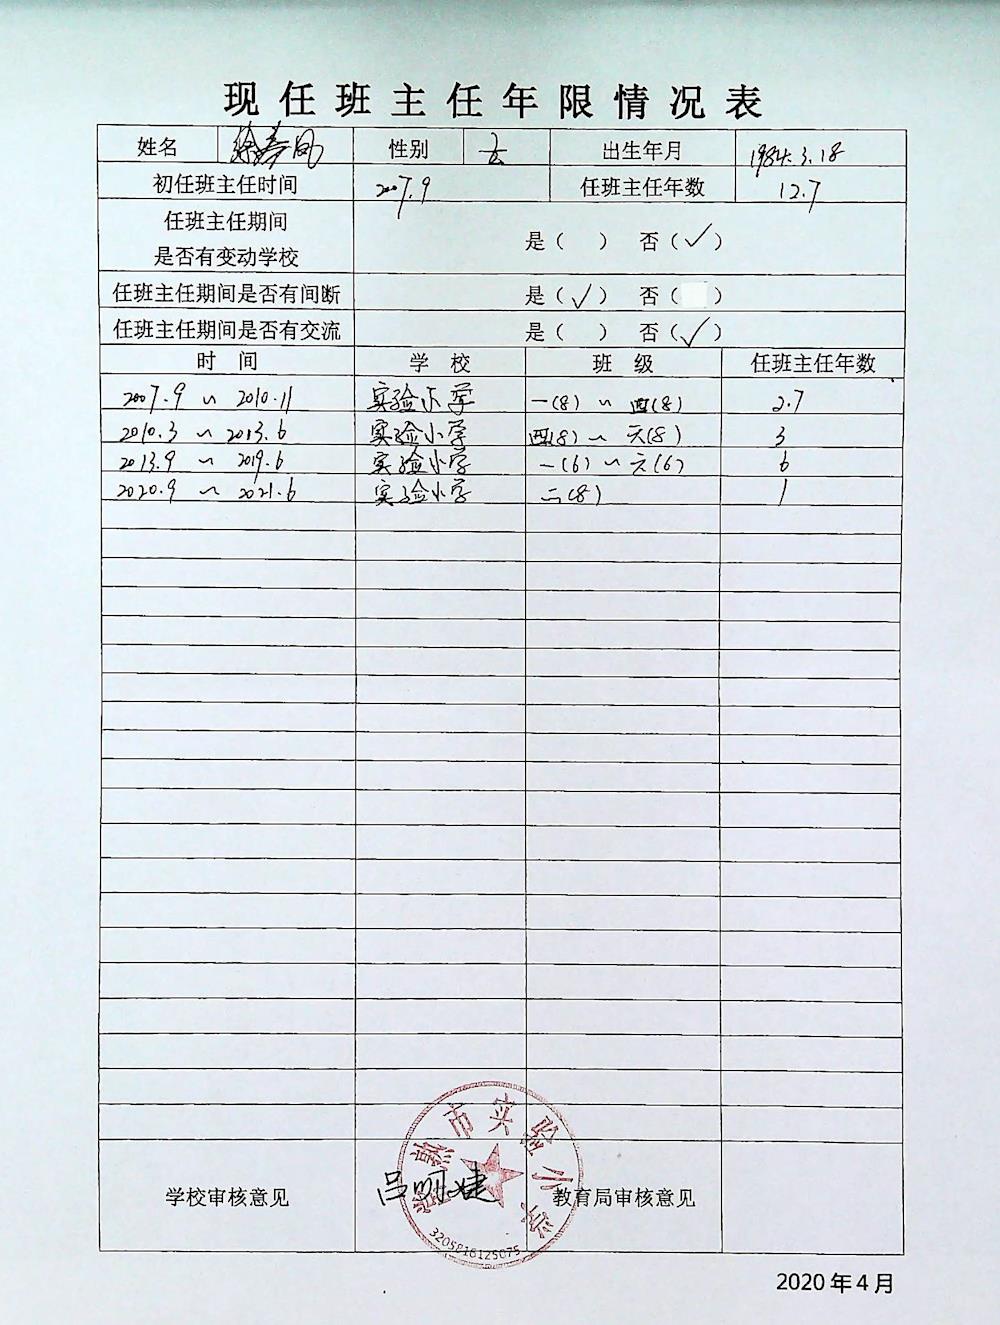 现任班主任年限情况表
姓名 徐春凤 性别 女 出生年月 1984.3.18
初任班主任时间 2007.9 任班主任年数 12.7
任班主任期间
是否有变动学校 是( ) 否(✓)
任班主任期间是否有间断 是(✓) 否( )
任班主任期间是否有交流 是( ) 否(✓)
时 间 学 校 班 级 任班主任年数
2007.9 ~ 2010.11 实验小学 一(8) ~ 四(8) 2.7
2010.3 ~ 2013.6 实验小学 四(8) ~ 六(8) 3
2013.9 ~ 2019.6 实验小学 一(6) ~ 六(6) 6
2020.9 ~ 2021.6 实验小学 二(8) 1
常熟市实验小学
学校审核意见 吕明婕 教育局审核意见
2020年4月